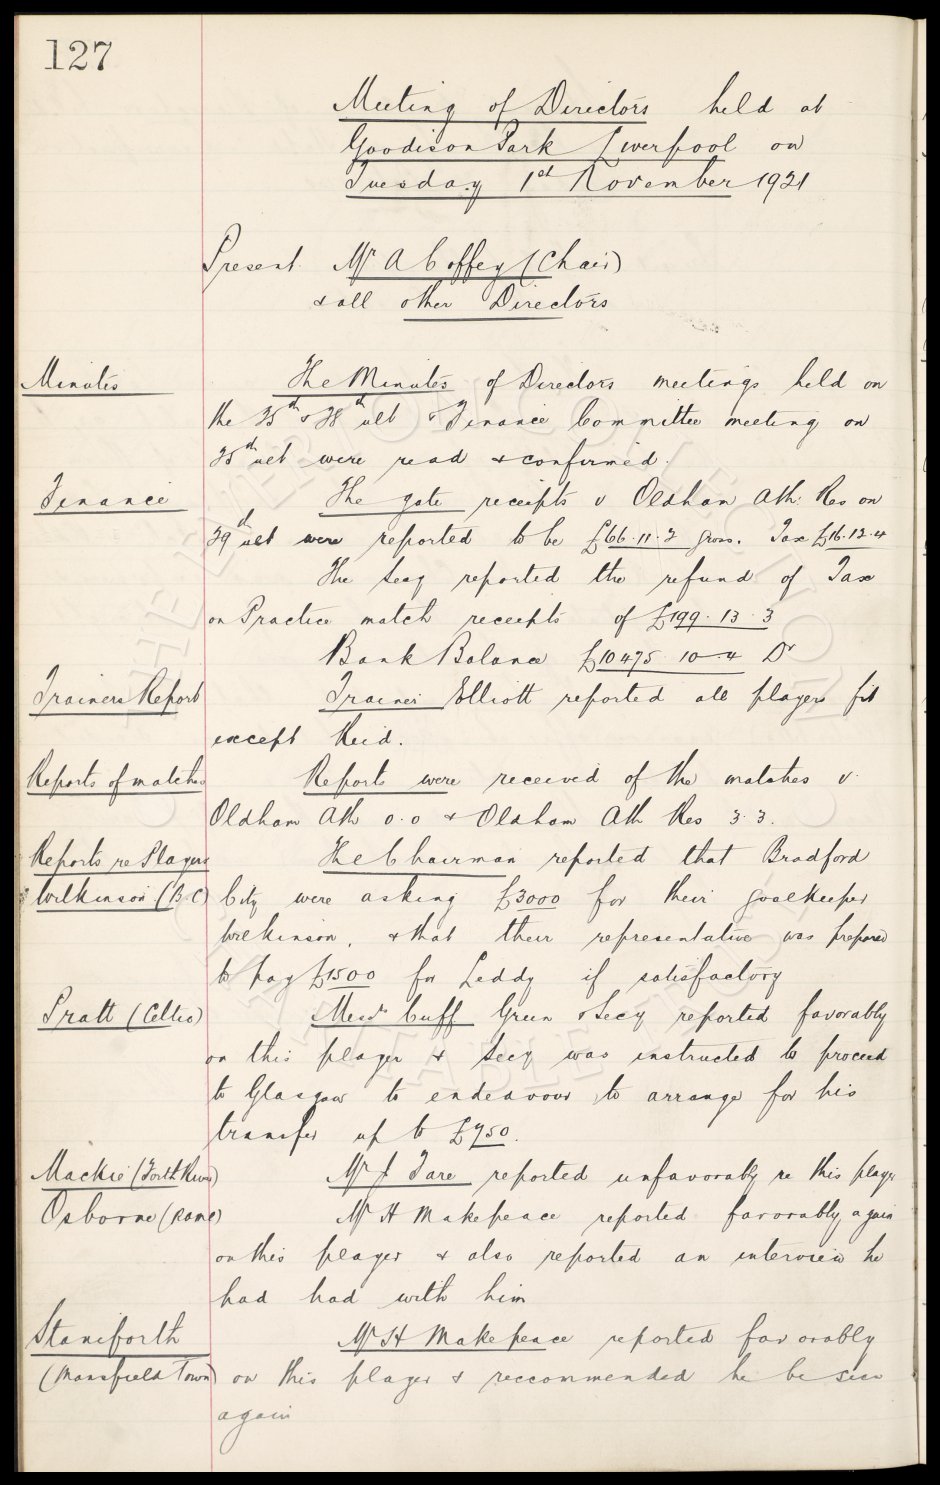 127
Meeting of Directors held at
Goodison Park Liverpool on
Tuesday 1st November 1921
Present Mr A Coffey (Chair)
& all other Directors
Minutes The Minutes of Directors meetings held on
the 25th & 28th ult & Finance Committee meeting on
25th ult were read & confirmed.
Finance The gate receipts v Oldham Ath Res on
29th ult were reported to be £66.11.2 gross. Tax £16.12.4
The Secy reported the refund of Tax
on Practice match receipts of £199.13.3
Bank Balance £10475.10.4 Dr
Trainers Report Trainer Elliott reported all players fit
except Reid.
Reports of matches Reports were received of the matches v.
Oldham Ath 0.0 & Oldham Ath Res 3.3.
Reports re Players The Chairman reported that Bradford
Wilkinson (B.C) City were asking £3000 for their goalkeeper
Wilkinson, & that their representative was prepared
to pay £1500 for Leddy if satisfactory
Pratt (Celtic) Messrs Cuff Green & Secy reported favorably
on this player & Secy was instructed to proceed
to Glasgow to endeavour to arrange for his
transfer up to £750.
Mackie (Forth River) Mr J Fare reported unfavorably re this player
Osborne (Rome) Mr H Makepeace reported favorably again
on this player & also reported an interview he
had had with him
Staniforth Mr H Makepeace reported favorably
(Mansfield Town) on this player & reccommended he be seen
again